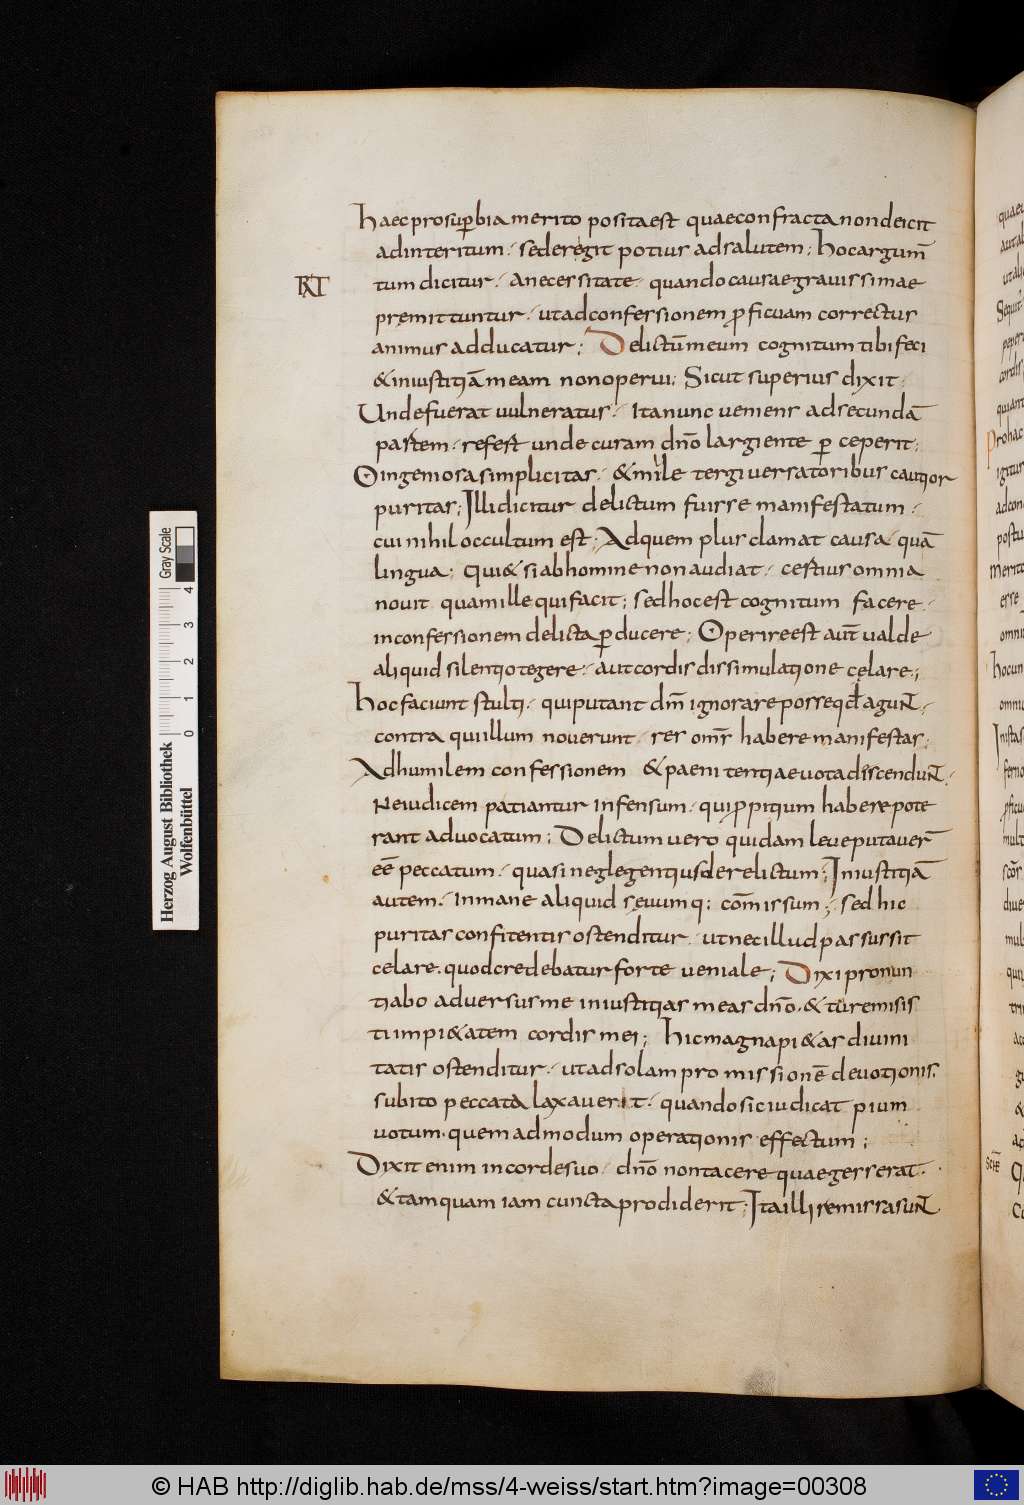 haec pro superbia merito posita est quae confracta non deicit
ad interitum. sed eregit potius ad salutem; hoc argum̄
RT
tum dicitur. a necessitate. quando causae gravissimae
premittuntur. ut ad confessionem ꝓficuam correctus
animus adducatur; Delictū meum cognitum tibi feci
& iniustitiā meam non operui; Sicut superius dixit.
Unde fuerat vulneratus. ita nunc veniens ad secundā
partem. refest unde curam dn̄o largiente ꝑceperit;
O ingeniosa simplicitas. & mille tergiversatoribus cautior
puritas; Illi dicitur delictum fuisse manifestatum.
cui nihil occultum est; Ad quem plus clamat causa. quā
lingua; qui & si ab homine non audiat. certius omnia
novit quam ille qui facit; sed hoc est cognitum facere.
in confessionem delicta ꝑducere; Operire est aut̄ valde
aliquid silentio tegere. aut cordis dissimulatione celare;
hoc faciunt stulti. qui putant dm̄ ignorare posse qd̄ agunt.
contra qui illum noverunt. res om̄s habere manifestas;
Ad humilem confessionem & paenitentiae vota discendunt.
Ne iudicem patiantur infensum. qui ꝓpitium habere pote
rant advocatum; Delictum vero quidam leve putaver̄
eē peccatum. quasi neglegentius derelictum; Iniustitiā
autem. inmane aliquid sęvumq; com̄issum; sed hic
puritas confitentis ostenditur. ut nec illud passus sit
celare. quod credebatur forte veniale; Dixi pronun
tiabo adversus me iniustitias meas dn̄o. & tu remisis
ti impi&atem cordis mei; hic magna pi&as divini
tatis ostenditur. ut ad solam promissionē devotionis.
subito peccata laxaverit. quando sic iudicat pium
votum. quemadmodum operationis effectum;
Dixit enim in corde suo. dn̄o non tacere quae gesserat.
& tamquam iam cuncta prodiderit; Ita illi remissa sunt
Gray Scale
0 1 2 3 4
Herzog August Bibliothek
Wolfenbüttel
© HAB http://diglib.hab.de/mss/4-weiss/start.htm?image=00308